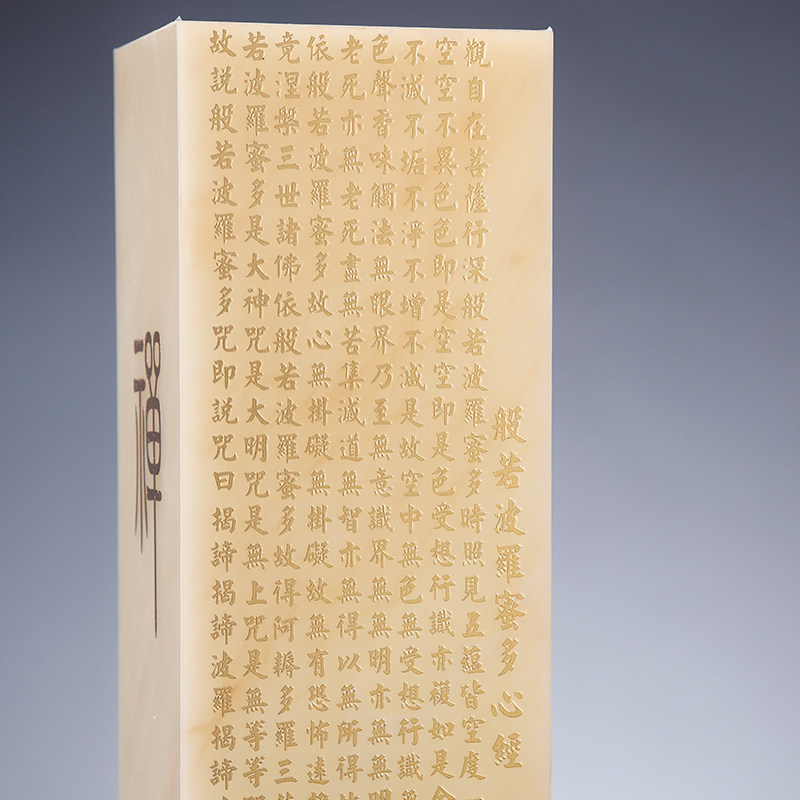 般若波羅蜜多心經
觀自在菩薩行深般若波羅蜜多時照見五蘊皆空度一
空空不異色色即是空空即是色受想行識亦複如是
不滅不垢不淨不增不減是故空中無色無受想行識無
色聲香味觸法無眼界乃至無意識界無無明亦無無明
老死亦無老死盡無苦集滅道無智亦無得以無所得
依般若波羅蜜多故心無掛礙無掛礙故無有恐怖遠
竟涅槃三世諸佛依般若波羅蜜多故得阿耨多羅三
若波羅蜜多是大神咒是大明咒是無上咒是無等等
故說般若波羅蜜多咒即說咒曰揭諦揭諦波羅揭諦
禪